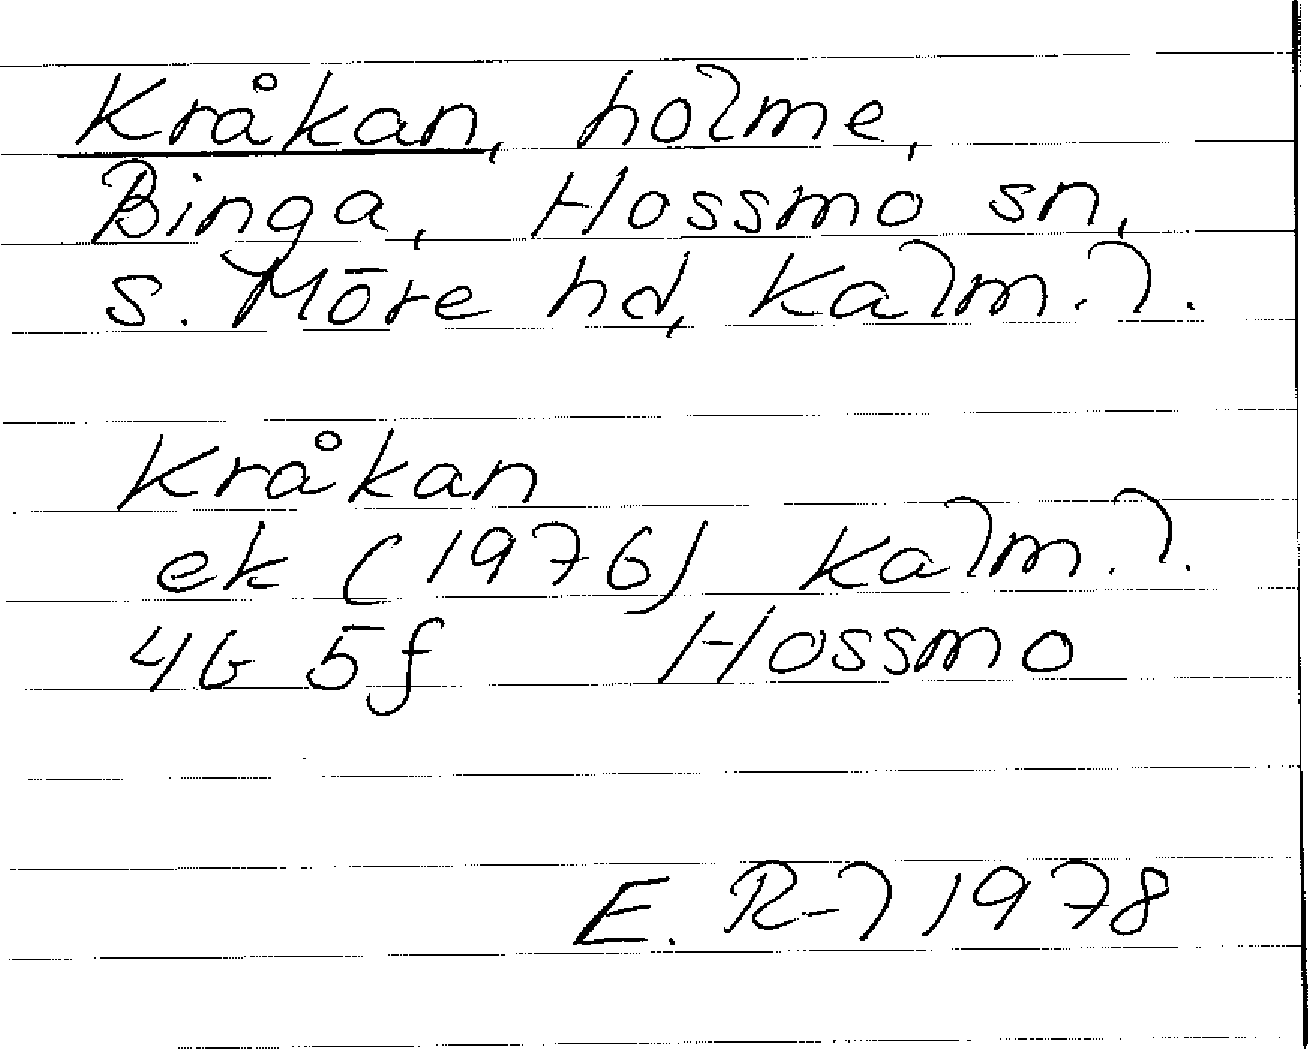 Kråkan, holme,
Binga, Hossmo sn,
S. Möre hd, Kalm. l.
Kråkan
ek (1976) Kalm. l.
4G 5f Hossmo
E. R-l 1978